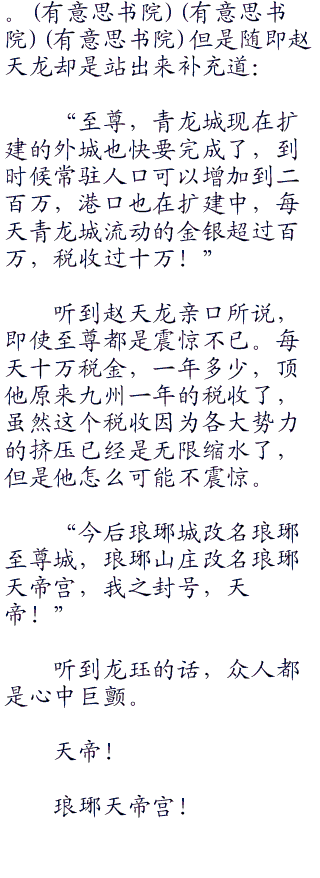 。(有意思书院)(有意思书
院)(有意思书院)但是随即赵
天龙却是站出来补充道：
“至尊，青龙城现在扩
建的外城也快要完成了，到
时候常驻人口可以增加到二
百万，港口也在扩建中，每
天青龙城流动的金银超过百
万，税收过十万！”
听到赵天龙亲口所说，
即使至尊都是震惊不已。每
天十万税金，一年多少，顶
他原来九州一年的税收了，
虽然这个税收因为各大势力
的挤压已经是无限缩水了，
但是他怎么可能不震惊。
“今后琅琊城改名琅琊
至尊城，琅琊山庄改名琅琊
天帝宫，我之封号，天
帝！”
听到龙珏的话，众人都
是心中巨颤。
天帝！
琅琊天帝宫！